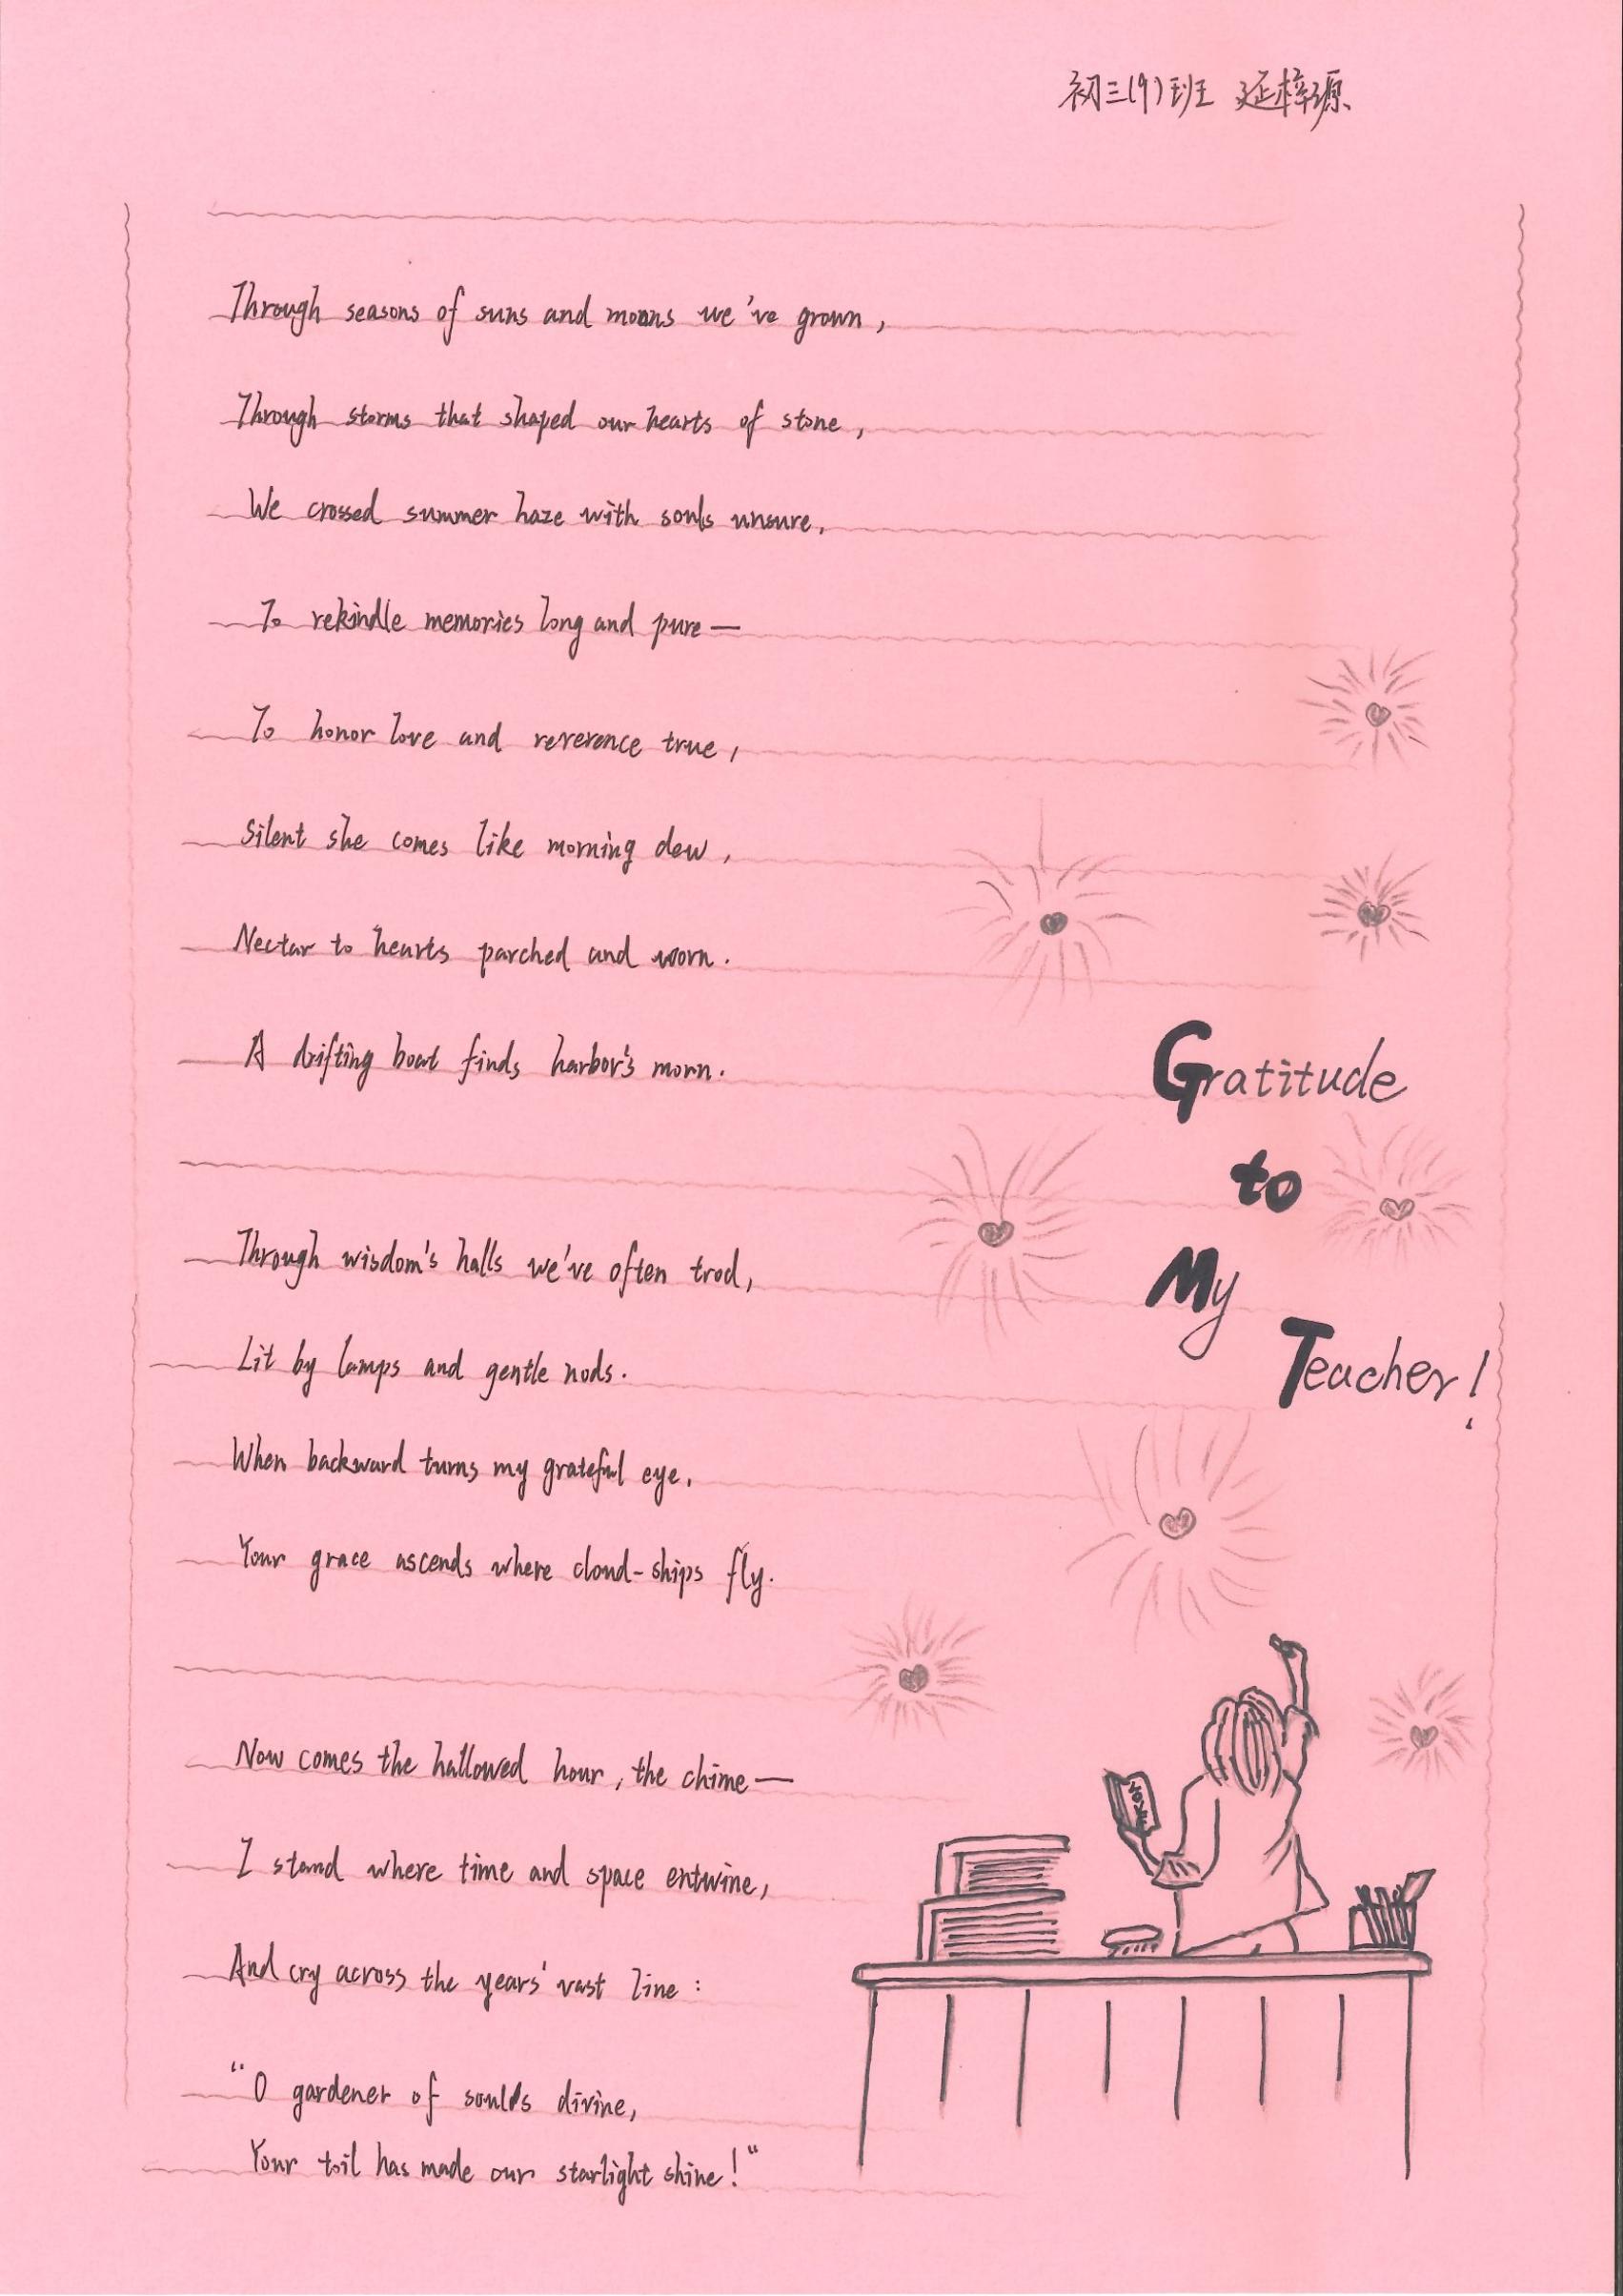 初三(9)班 延梓源
Through seasons of suns and moons we've grown,
Through storms that shaped our hearts of stone,
We crossed summer haze with souls unsure,
To rekindle memories long and pure—
To honor love and reverence true,
Silent she comes like morning dew,
Nectar to hearts parched and worn.
A drifting boat finds harbor's morn.
Gratitude
to
My
Teacher!
Through wisdom's halls we've often trod,
Lit by lamps and gentle nods.
When backward turns my grateful eye,
Your grace ascends where cloud-ships fly.
Now comes the hallowed hour, the chime—
I stand where time and space entwine,
And cry across the years' vast line:
"O gardener of souls divine,
Your toil has made our starlight shine!"